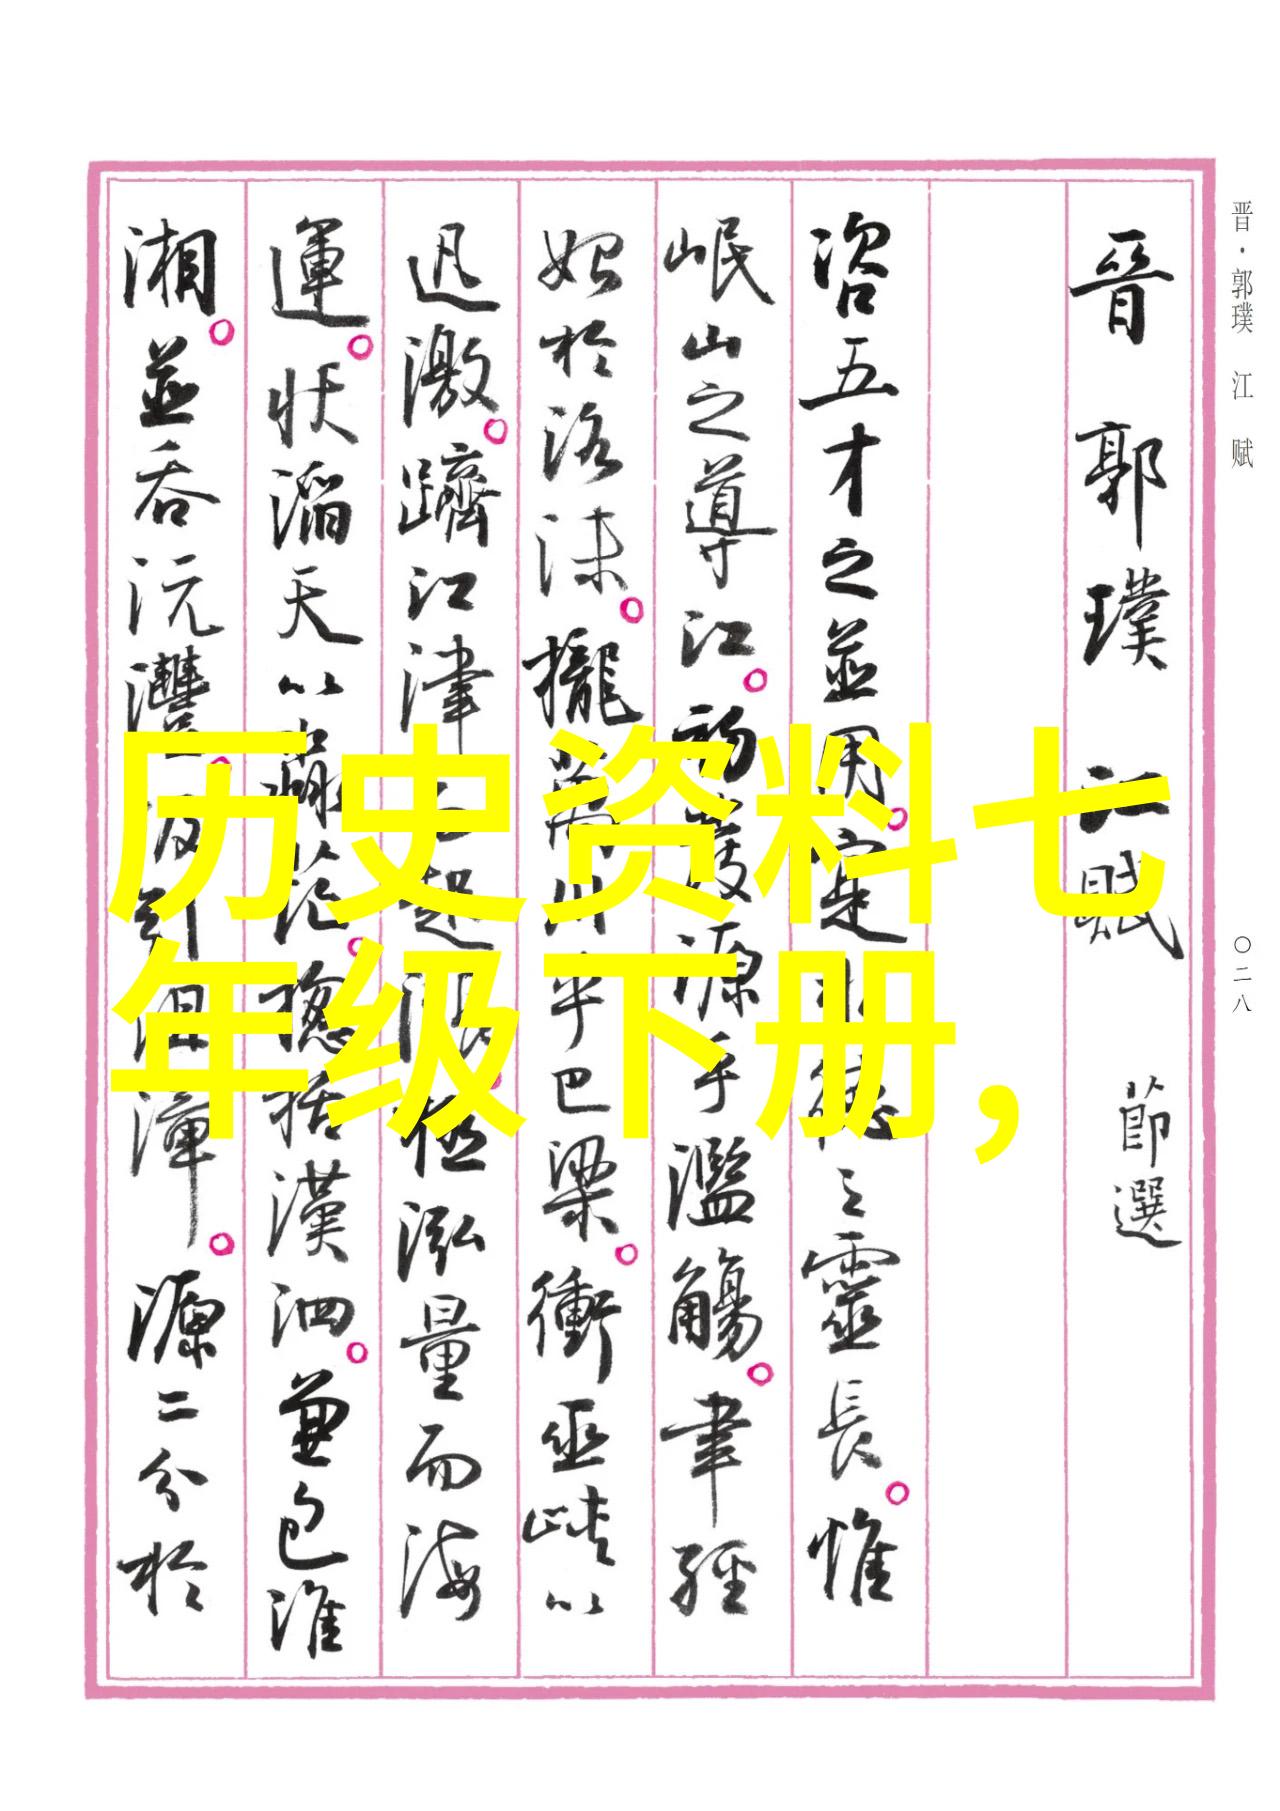 晋·郭璞 江 赋
〇二八
晉 郭 璞 江 賦 節選
咨五才之並用寔水德之靈長惟
岷山之導江初發源乎濫觴聿經
始於洛沬攏萬川乎巴梁衝巫峽以
迅激躋江津而起漲極泓量而海
運狀滔天以淼茫揔括漢泗兼包淮
湘並吞沅澧汲引沮漳源二分於
历史资料七
年级下册，